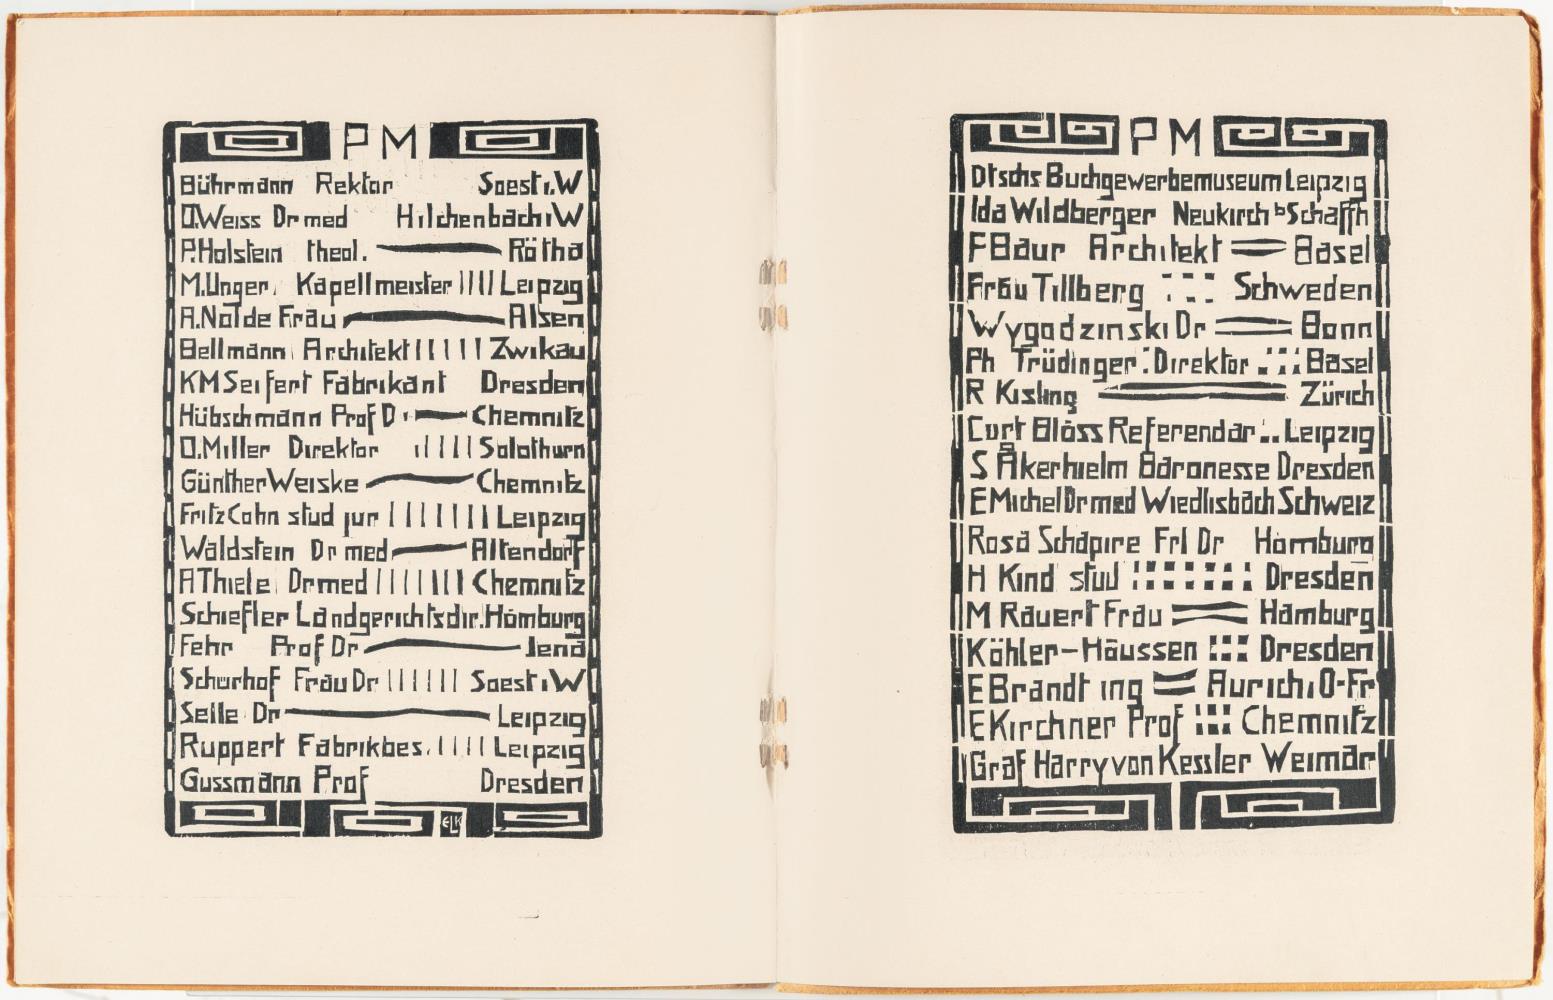 PM
Bührmann Rektor Soest i.W
O.Weiss Dr med Hilchenbach i W
P.Holstein theol. Rötha
M.Unger Kapellmeister Leipzig
A.Nolde Frau Alsen
Bellmann Architekt Zwikau
KM Seifert Fabrikant Dresden
Hübschmann Prof D Chemnitz
O.Miller Direktor Solothurn
Günther Weiske Chemnitz
Fritz Cohn stud jur Leipzig
Waldstein Dr med Altendorf
A Thiele Dr med Chemnitz
Schiefler Landgerichtsdir. Hamburg
Fehr Prof Dr Jena
Schürhof Frau Dr Soest i W
Selle Dr Leipzig
Ruppert Fabrikbes. Leipzig
Gussmann Prof Dresden
ELK
PM
Dtschs Buchgewerbemuseum Leipzig
Ida Wildberger Neukirch b Schaffh
F Baur Architekt Basel
Frau Tillberg Schweden
Wygodzinski Dr Bonn
Ph Trüdinger Direktor Basel
R Kisling Zürich
Curt Glöss Referendar Leipzig
S Åkerhielm Baronesse Dresden
E Michel Dr med Wiedlisbach Schweiz
Rosa Schapire Frl Dr Hamburg
H Kind stud Dresden
M Rauert Frau Hamburg
Köhler-Häussen Dresden
E Brandt ing Aurich i O-Fr
E Kirchner Prof Chemnitz
Graf Harry von Kessler Weimar